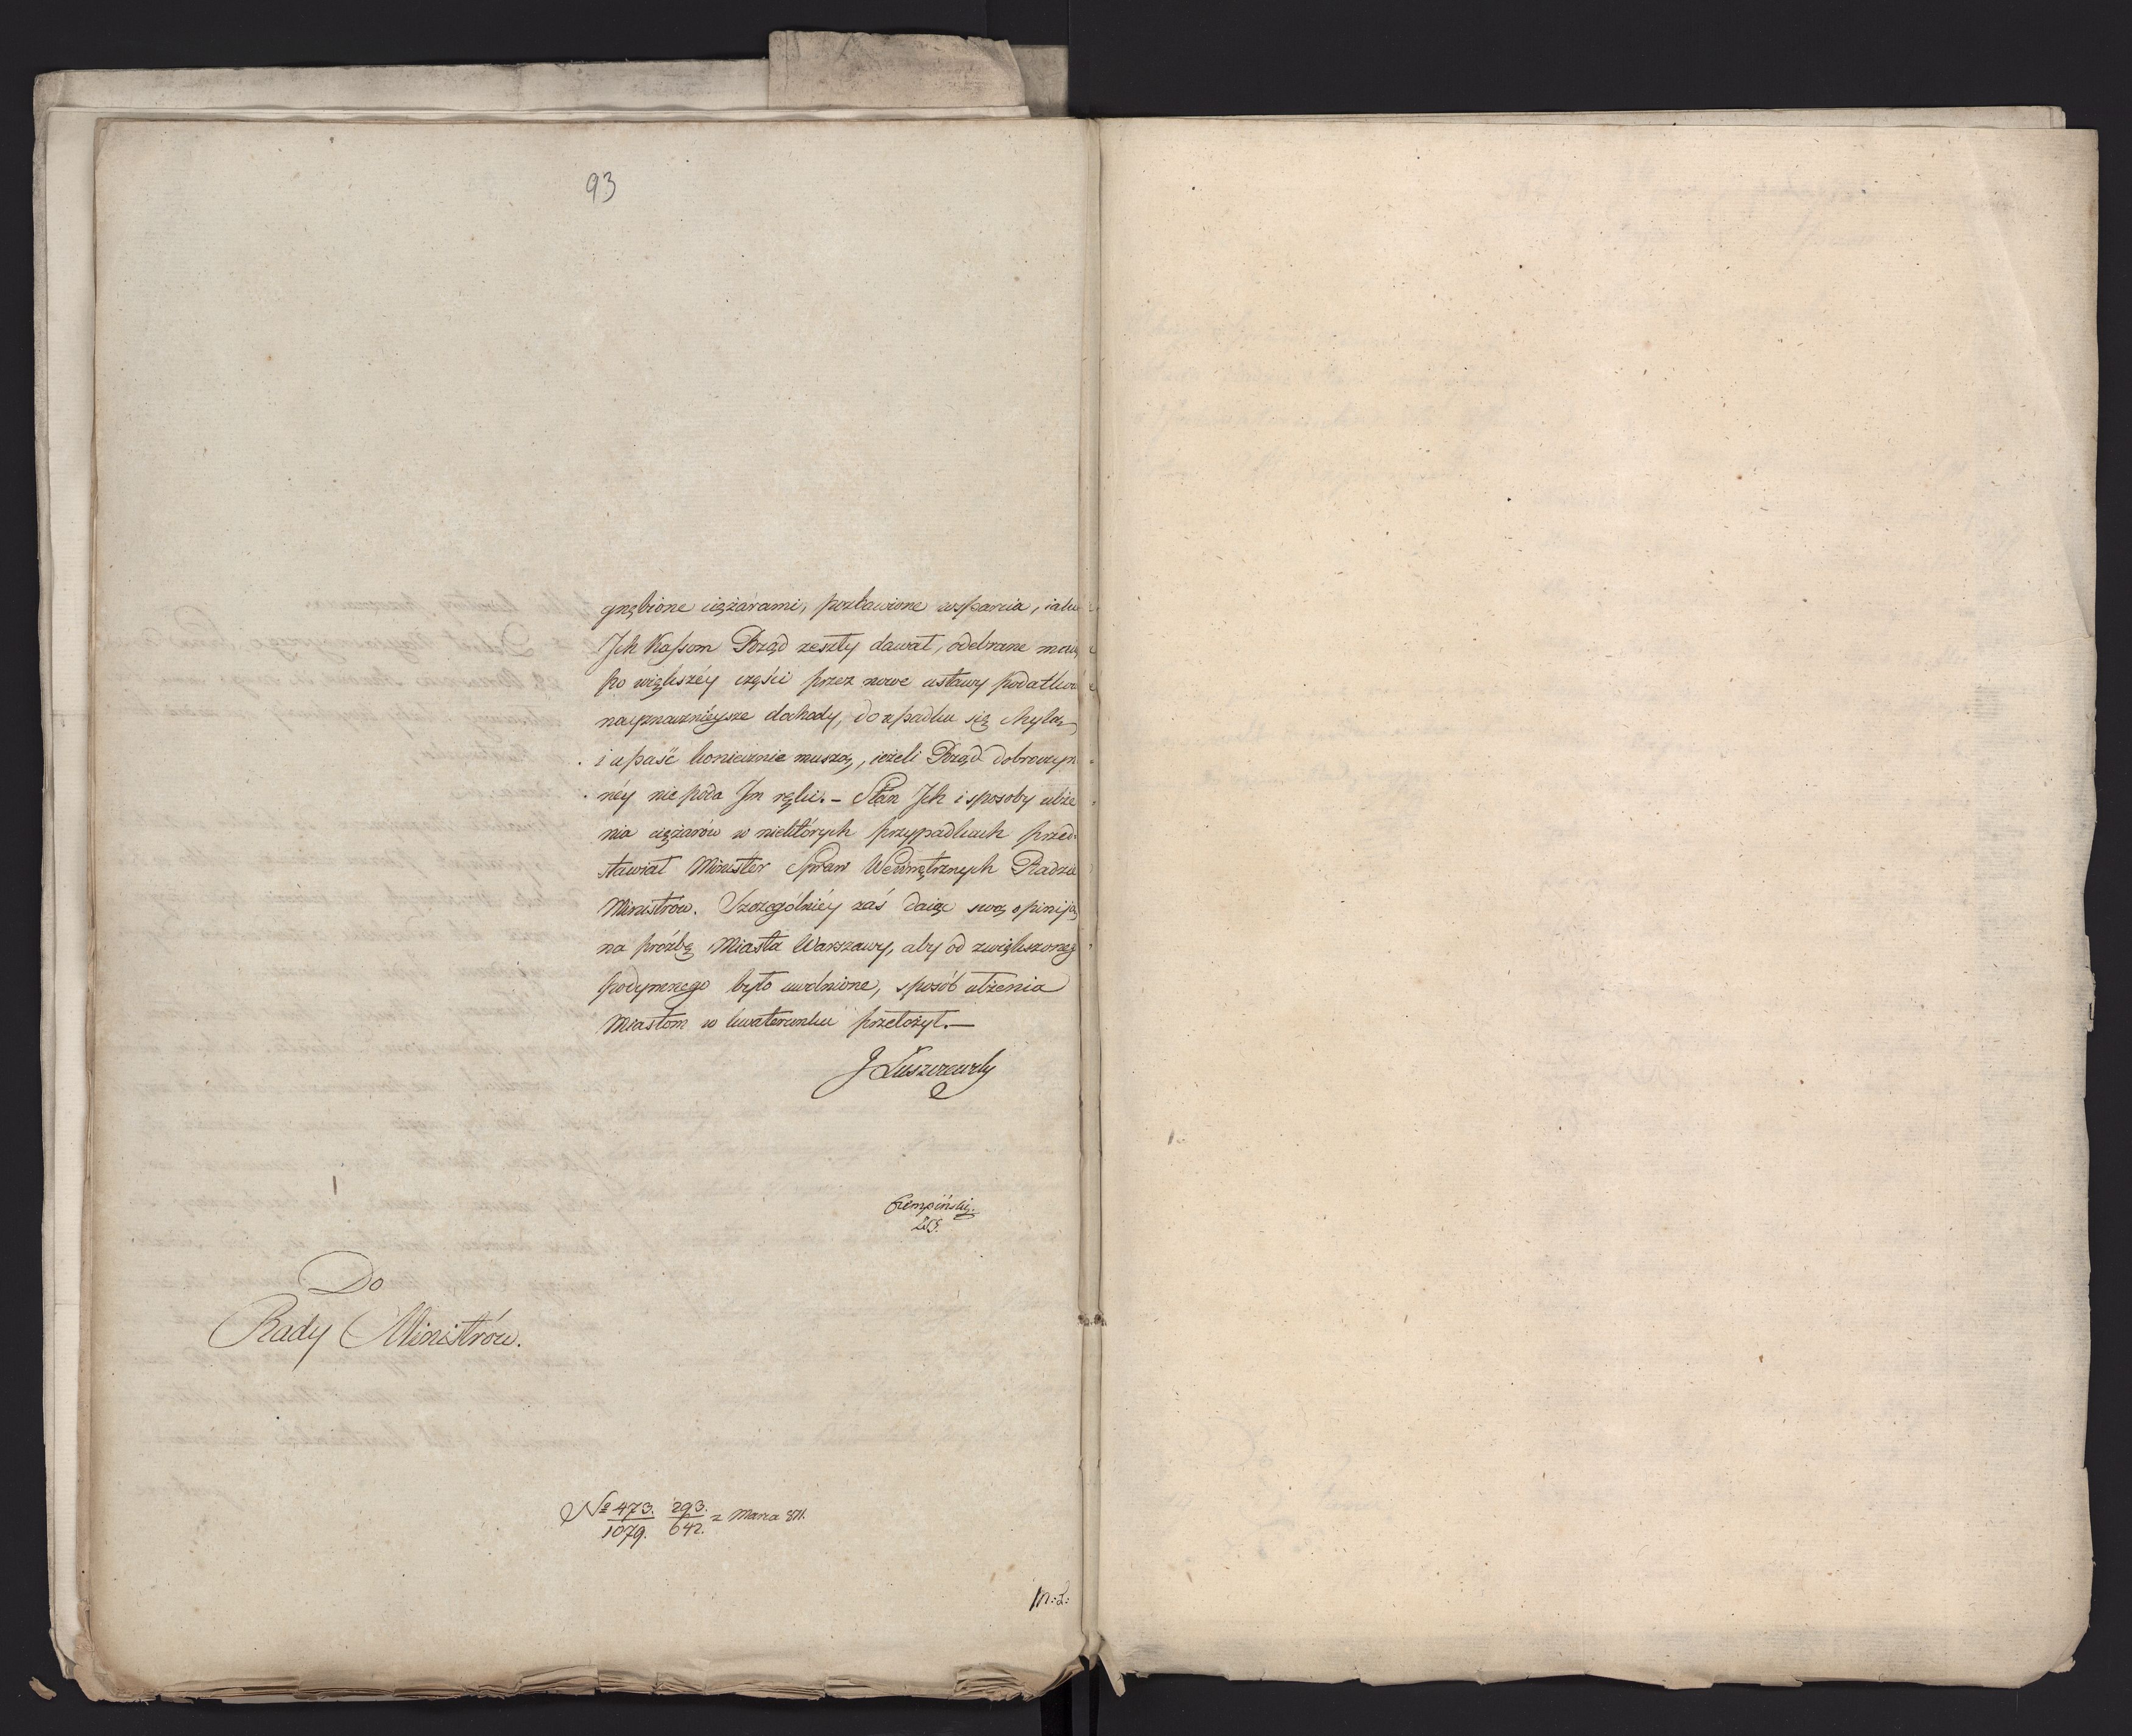 93
gnębione ciężarami, pozbawione wsparcia, iakie
Jch Kassom Rząd zeszły dawał, odebrane maią
po większéy części przez nowe ustawy podatkow
nayznacznieysze dochody, do upadku się chylą,
i upaść koniecznie muszą, ieżeli Rząd dobroczyn
néy nie poda Jm ręki. – Stan Jch i sposoby ulże
nia ciężarów w niektórych przypadkach przed:
stawiał Minister Spraw Wewnętrznych Radzie
Ministrów. Szczególniéy zaś daiąc swą opiniją
na proźbę Miasta Warszawy, aby od zwiększoneg
podymnego było uwolnione, sposób ulżenia
Miastom w kwaterunku przełożył. —
J Łuszczewsky
Do
Rady Ministrów.
№ 473. 293. z Marca 811.
1079. 642.